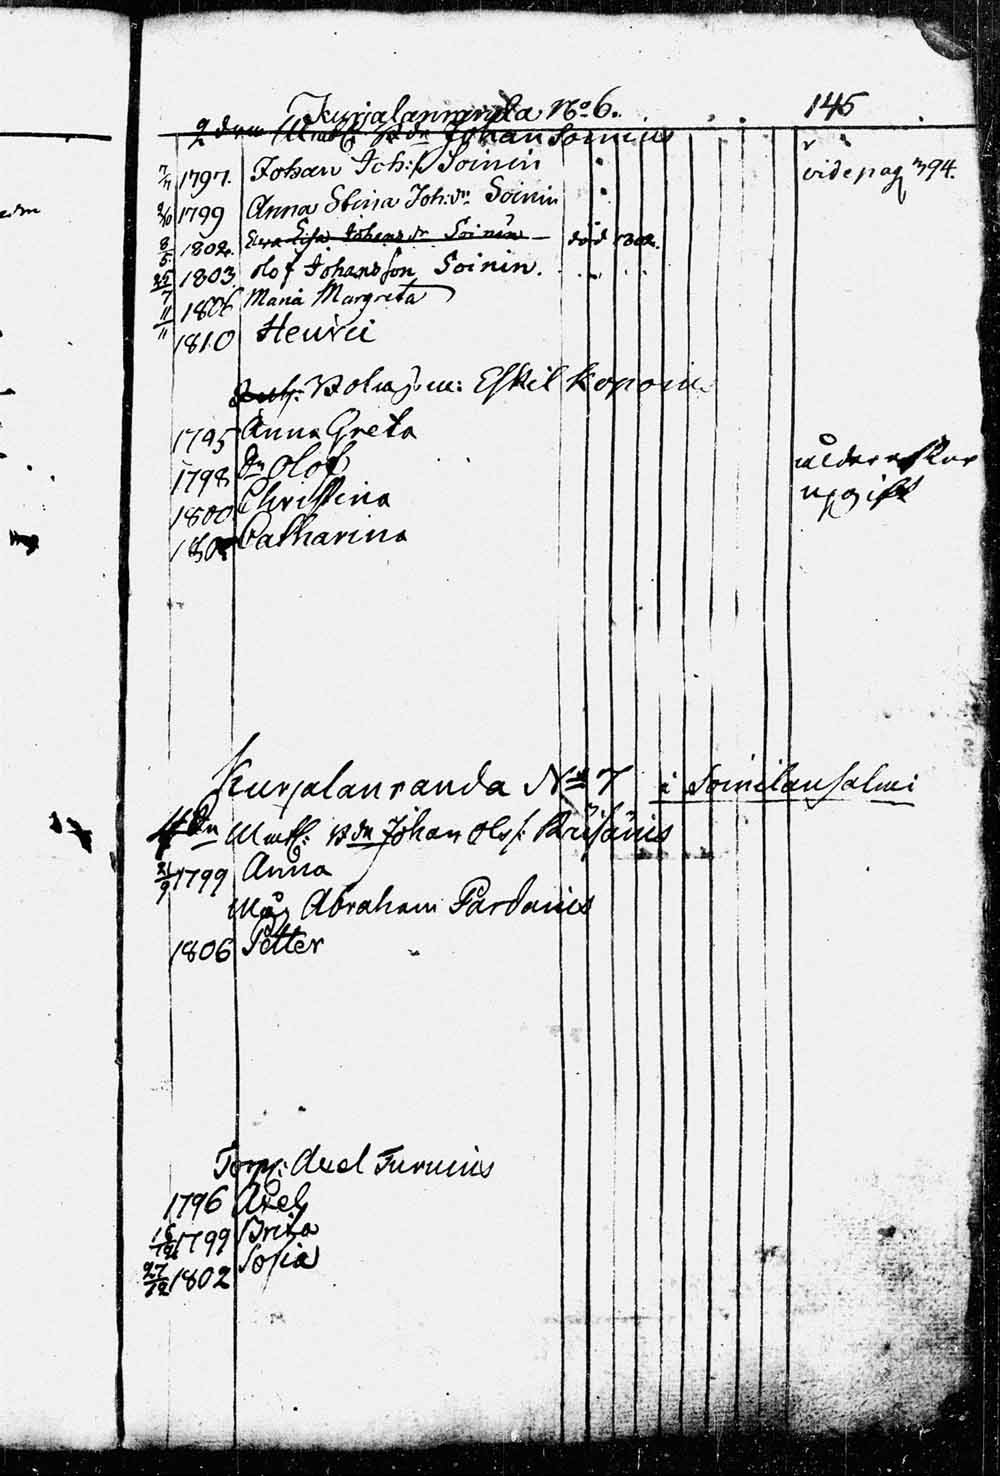 Kurjalanranda No 6. 145
2 dra Bdr Johan Soinius
7/7 1797. Johan Joh:s Soinin vide pag 394.
1799 Anna Stina Joh:dr Soinin
8/5 1802. Eva Lisa Johansdr Soinin död 1802.
25/7 1803 Olof Johansson Soinin.
11/11 1806 Maria Margreta
1810 Henric
Eskel Koponen
1795 Anna Greta
1798 Dn Olof
1800 Christina
180 Catharina
Kurjalanranda No 7 i Soinilansalmi
Bdr Johan Olofs:
21/9 1799 Anna
Måg Abraham Pardanus
1806 Petter
Torp: Axel Furunius
1796 Axel
16/12 1799 Brita
27/12 1802 Sofia